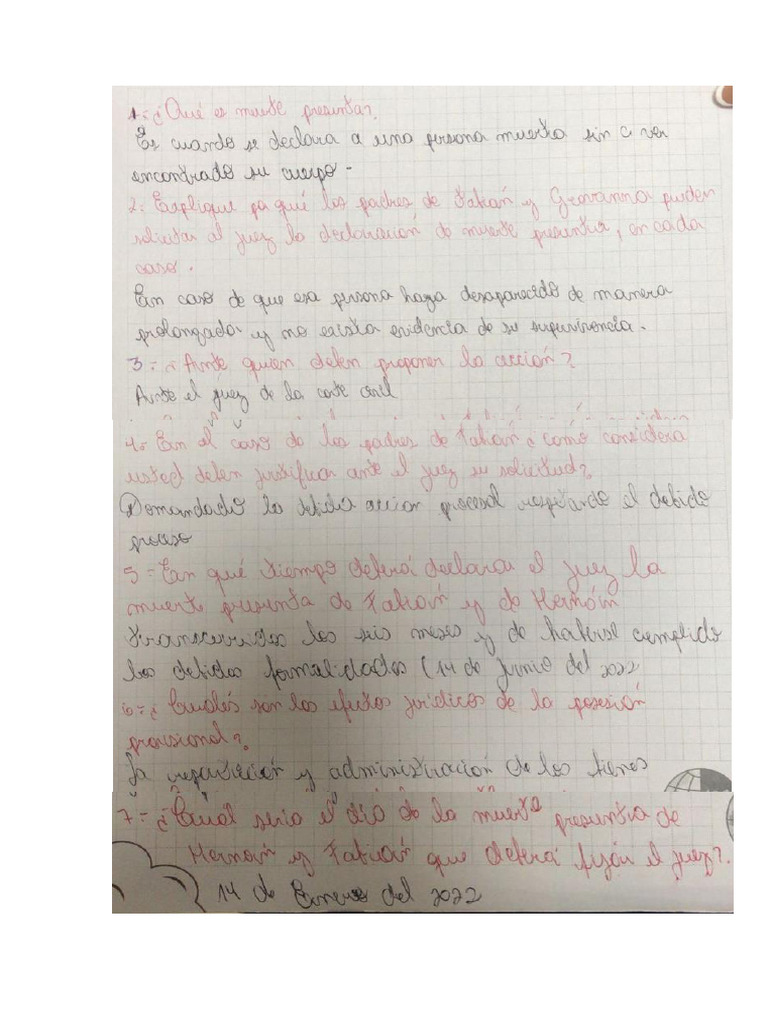 1-¿Qué es muerte presunta?
Es cuando se declara a una persona muerta sin a ver
encontrado su cuerpo-
2- Explique pq qué los padres de Fabián y Geovanna pueden
solicitar al juez la declaración de muerte presunta, en cada
caso.
En caso de que esa persona haya desaparecido de manera
prolongada y no exista evidencia de su supervivencia.
3- ¿Ante quien deben proponer la acción?
Ante el juez de la corte civil
4- En el caso de los padres de Fabián ¿como considera
usted deben justificar ante el juez su solicitud?
Demandado la debida accion procesal respetando el debido
proceso
5- En qué tiempo deberá declarar el juez la
muerte presunta de Fabián y de Hernán
transcurridos los seis meses y de haberse cumplido
los debidos formalidades (14 de junio del 2022
6-¿Cuáles son los efectos jurídicos de la posesión
provisional?
la repartición y administración de los bienes
7-¿Cuál seria el dia de la muerte presunta de
Hernán y Fabián que deberá fijar el juez?
14 de Enero del 2022